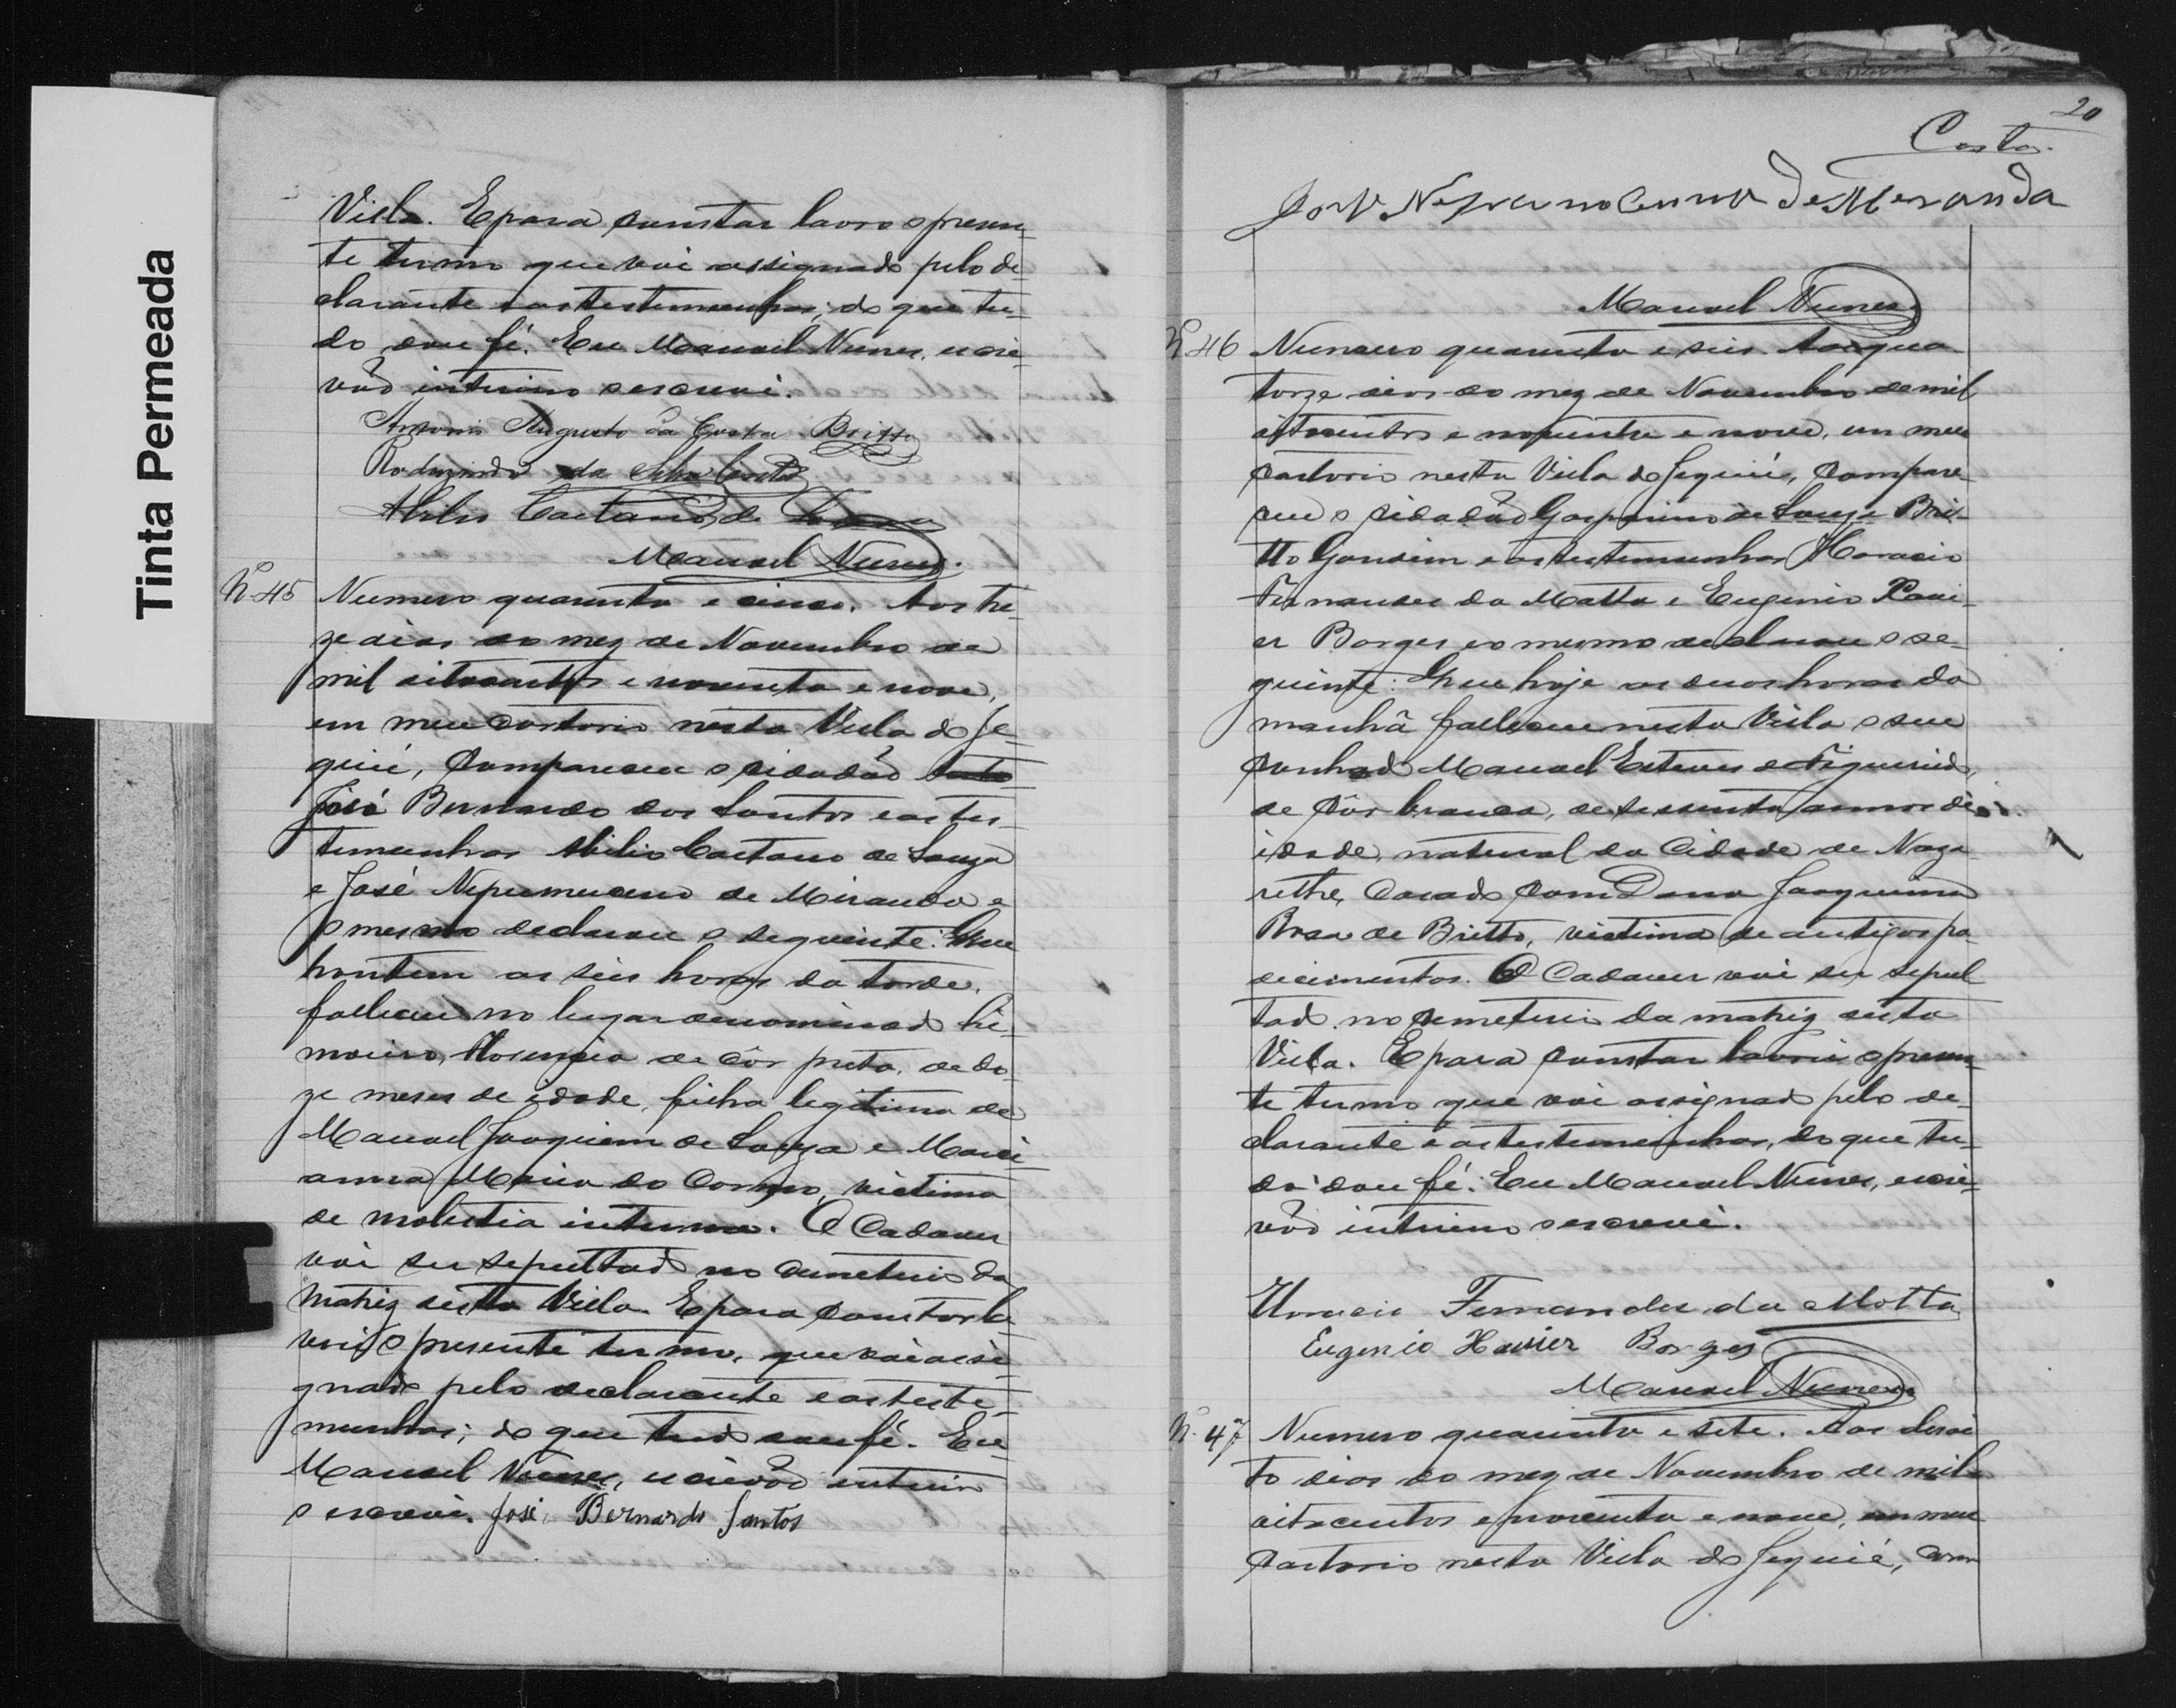 Tinta Permeada
Villa. E para constar lavro o presen-
te termo que vai assignado pelo de-
clarante e as testemunhas; do que tu-
do dou fé. Eu Manoel Nunes, escri-
vão interino o escrevi.
Antonio Augusto da Costa Britto
da Silva Costa
Abilio Caetano de Souza
Manoel Nunes.
Nº 45 Numero quarenta e cinco. Aos tre-
ze dias do mez de Novembro de
mil oitocentos e noventa e nove,
em meu cartorio nesta Villa de Je-
quié, compareceu o cidadão
José Bernardo dos Santos e as tes-
temunhas Abilio Caetano de Souza
e José Nepumuceno de Miranda e
o mesmo declarou o seguinte: Que
hontem as seis horas da tarde,
falleceu no lugar denominado Li-
moeiro, de côr preta, de do-
ze meses de idade, filha legitima de
Manoel Joaquim de Souza e Marci-
anna Maria do Carmo, victima
de molestia interna. O Cadaver
vai ser sepultado no cemeterio da
Matriz desta Villa. E para constar la-
vrei o presente termo, que vai assi-
gnado pelo declarante e as teste-
munhas; do que tudo dou fé. Eu
Manoel Nunes, escrivão interino
o escrevi. José Bernardo Santos
20
Costa.
José Nepomuceno de Meranda
Manoel Nunes
Nº 46 Numero quarenta e seis. Aos qua-
torze dias do mez de Novembro de mil
oitocentos e noventa e nove, em meu
cartorio nesta Villa de Jequié, compare-
ceu o cidadão Gasparino de Souza Bri-
tto Gondim e as testemunhas Horacio
Fernandes da Motta e Eugenio Xavi-
er Borges e o mesmo declarou o se-
guinte: Que hoje as duas horas da
manhã falleceu nesta Villa o seu
cunhado Manoel Esteves de Figueiredo,
de côr branca, de sessenta annos de
idade, natural da Cidade de Naza-
reth, casado com Dona Joaquina
Rosa de Britto, victima de antigos pa-
decimentos. O Cadaver vai ser sepul-
tado no cemeterio da matriz desta
Villa. E para constar lavrei o presen-
te termo que vai assignado pelo de-
clarante e as testemunhas, do que tu-
do dou fé. Eu Manoel Nunes, escri-
vão interino o escrevi.
Horacio Fernandes da Motta
Eugenio Xavier Borges
Manoel Nunes
Nº 47 Numero quarenta e sete. Aos desoi-
to dias do mez de Novembro de mil
oitocentos e noventa e nove, em meu
cartorio nesta Villa de Jequié, com